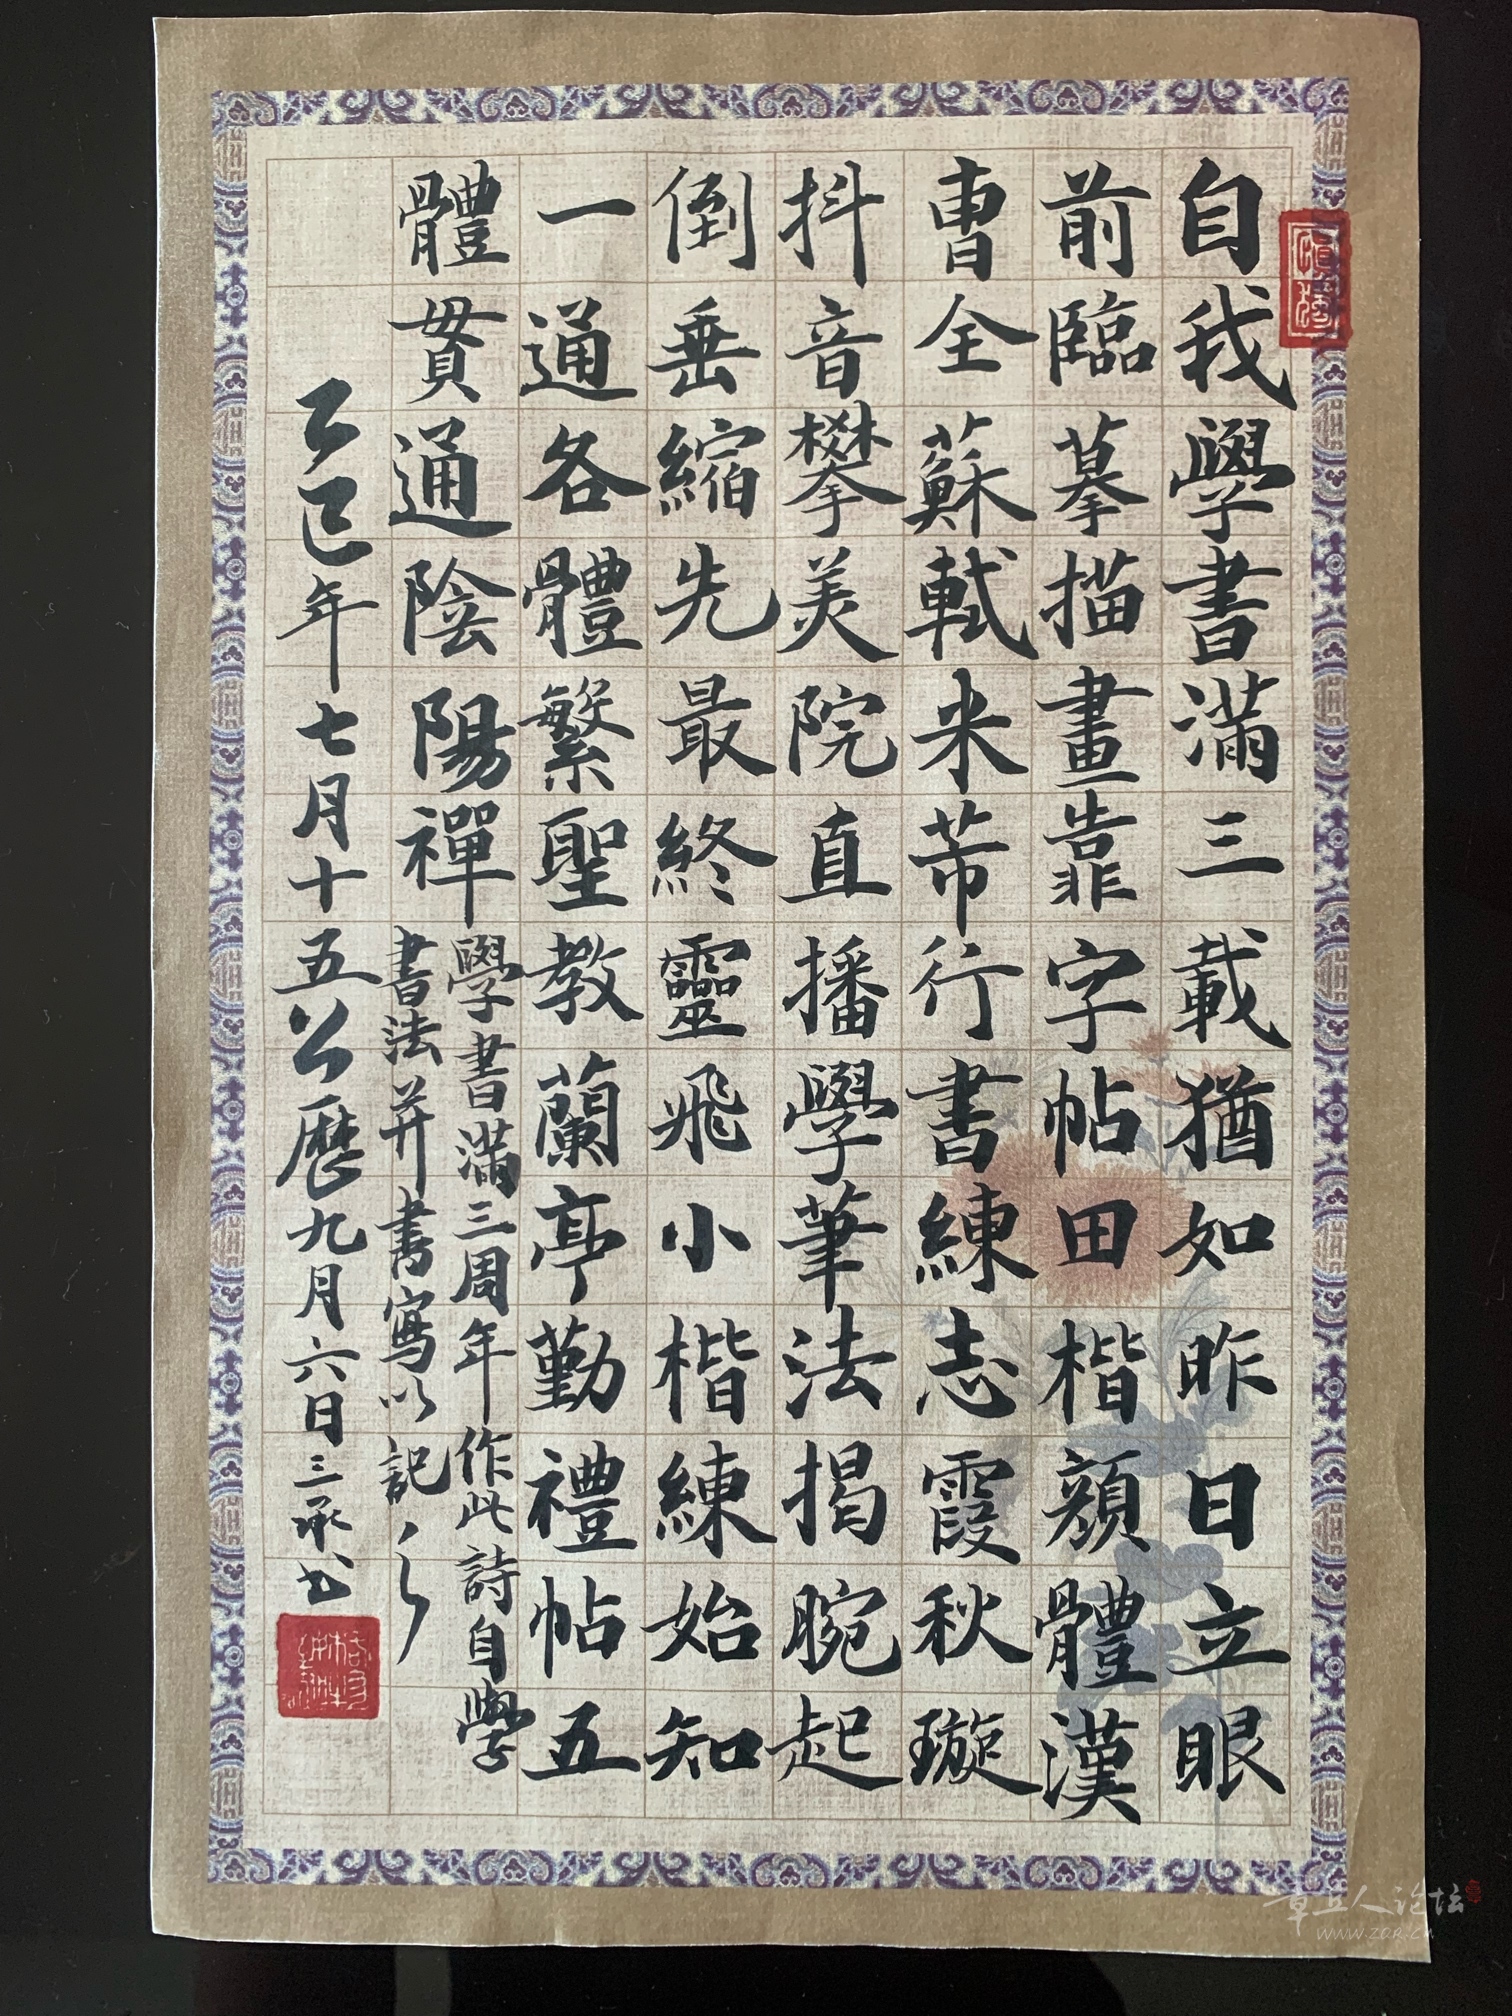 自我學書滿三載猶如昨日立眼
前臨摹描畫靠字帖田楷顏體漢
曹全蘇軾米芾行書練志霞秋璇
抖音攀美院直播學筆法揭腕起
倒垂縮先最終靈飛小楷練始知
一通各體繁聖教蘭亭勤禮帖五
體貫通陰陽禪
學書滿三周年作此詩自學
書法并書寫以記之
乙巳年七月十五公歷九月六日三承書
章丘人论坛
www.zqr.cn